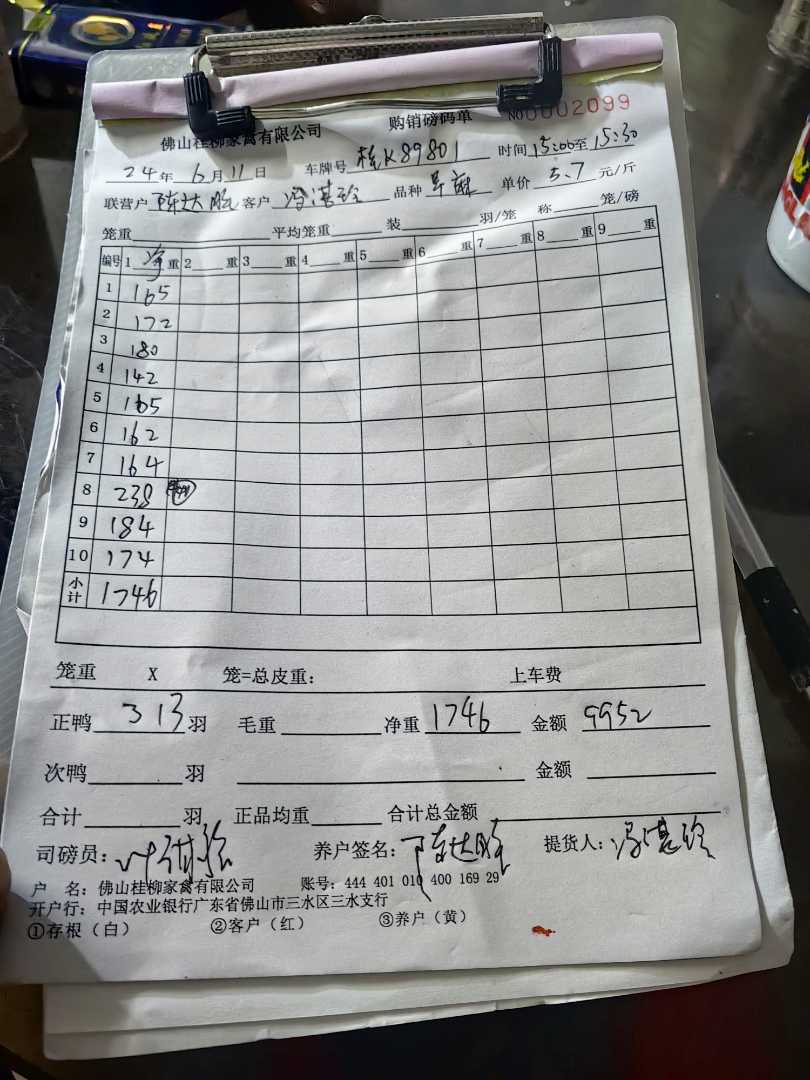 佛山桂柳家禽有限公司 购销磅码单 NO0002099
24年 6月 11日 车牌号 桂K89801 时间 15:00至15:30
联营户 陈达胜 客户 冯湛玲 品种 单价 5.7 元/斤
笼重 平均笼重 装 羽/笼 称 笼/磅
编号 1 净 重 2 重 3 重 4 重 5 重 6 重 7 重 8 重 9 重
1 165
2 172
3 180
4 142
5 165
6 162
7 164
8 238
9 184
10 174
小计 1746
笼重 X 笼=总皮重： 上车费
正鸭 313 羽 毛重 净重 1746 金额 9952
次鸭 羽 金额
合计 羽 正品均重 合计总金额
司磅员： 养户签名：陈达胜 提货人：冯湛玲
户 名：佛山桂柳家禽有限公司 账号：444 401 010 400 169 29
开户行：中国农业银行广东省佛山市三水区三水支行
①存根（白） ②客户（红） ③养户（黄）